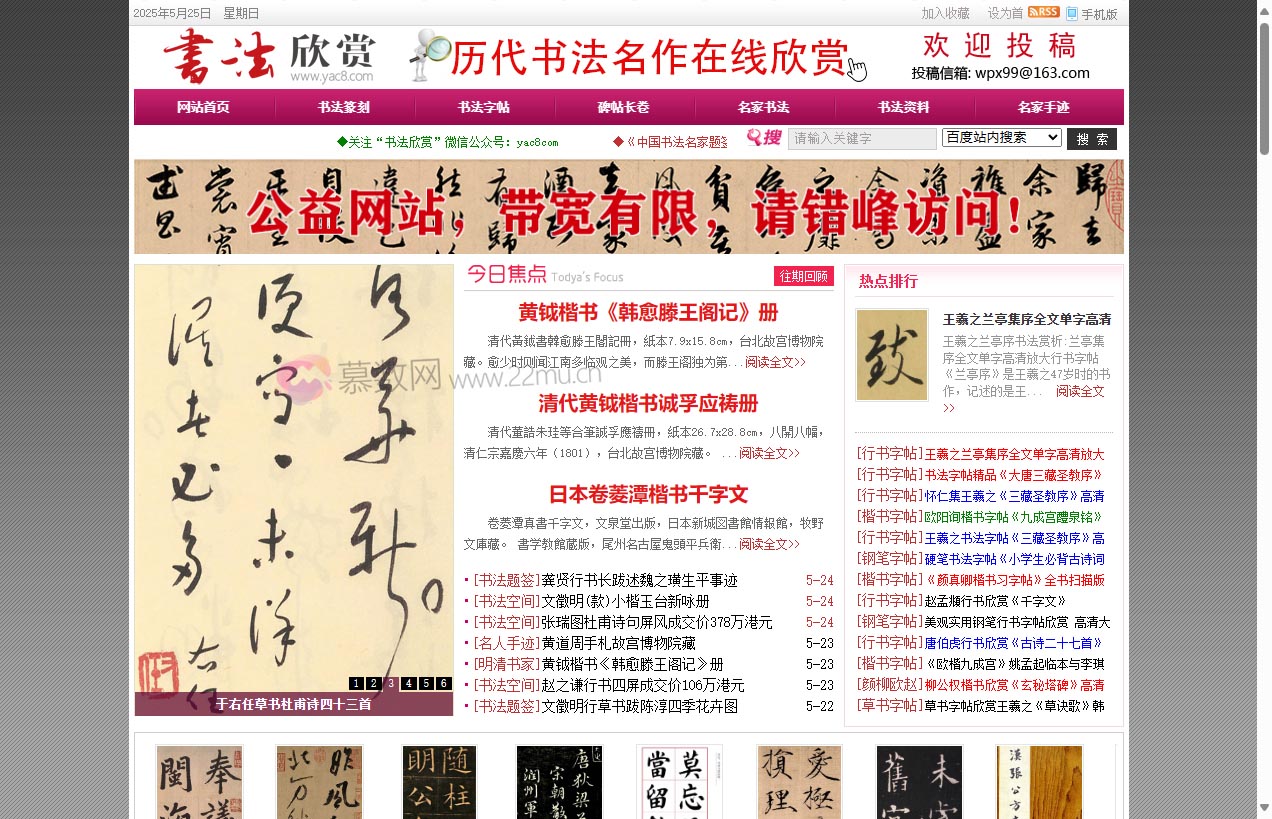 2025年5月25日 星期日
加入收藏 设为首 RSS 手机版
书法 欣赏
www.yac8.com
历代书法名作在线欣赏
欢迎投稿
投稿信箱: wpx99@163.com
网站首页 书法篆刻 书法字帖 碑帖长卷 名家书法 书法资料 名家手迹
◆关注“书法欣赏”微信公众号: yac8com
◆《中国书法名家题签
搜 请输入关键字 百度站内搜索 搜 索
公益网站，带宽有限，请错峰访问！
慕数网 www.22mu.cn
1 2 3 4 5 6
于右任草书杜甫诗四十三首
今日焦点 Todya's Focus 往期回顾
黄钺楷书《韩愈滕王阁记》册
清代黃鉞書韓愈滕王閣記冊，紙本7.9x15.8cm，台北故宫博物院
藏。愈少时则闻江南多临观之美，而滕王阁独为第...阅读全文>>
清代黄钺楷书诚孚应祷册
清代董誥朱珪等合筆誠孚應禱冊，紙本26.7x28.8cm，八開八幅，
清仁宗嘉慶六年（1801），台北故宫博物院藏。 ...阅读全文>>
日本卷菱潭楷书千字文
卷菱潭真書千字文，文泉堂出版，日本新城図書館情報館，牧野
文庫藏。 書学教館蔵版，尾州名古屋鬼頭平兵衛...阅读全文>>
[书法题签]龚贤行书长跋述魏之璜生平事迹 5-24
[书法空间]文徵明(款)小楷玉台新咏册 5-24
[书法空间]张瑞图杜甫诗句屏风成交价378万港元 5-24
[名人手迹]黄道周手札故宫博物院藏 5-23
[明清书家]黄钺楷书《韩愈滕王阁记》册 5-23
[书法空间]赵之谦行书四屏成交价106万港元 5-23
[书法题签]文徵明行草书跋陈淳四季花卉图 5-22
热点排行
王羲之兰亭集序全文单字高清
王羲之兰亭序书法赏析:兰亭集
序全文单字高清放大行书字帖
《兰亭序》是王羲之47岁时的书
作，记述的是王... 阅读全文
>>
[行书字帖]王羲之兰亭集序全文单字高清放大
[行书字帖]书法字帖精品《大唐三藏圣教序》
[行书字帖]怀仁集王羲之《三藏圣教序》高清
[楷书字帖]欧阳询楷书字帖《九成宫醴泉铭》
[行书字帖]王羲之书法字帖《三藏圣教序》高
[钢笔字帖]硬笔书法字帖《小学生必背古诗词
[楷书字帖]《颜真卿楷书习字帖》全书扫描版
[行书字帖]赵孟頫行书欣赏《千字文》
[钢笔字帖]美观实用钢笔行书字帖欣赏 高清大
[行书字帖]唐伯虎行书欣赏《古诗二十七首》
[楷书字帖]《欧楷九成宫》姚孟起临本与李琪
[颜柳欧赵]柳公权楷书欣赏《玄秘塔碑》高清
[草书字帖]草书字帖欣赏王羲之《草诀歌》韩